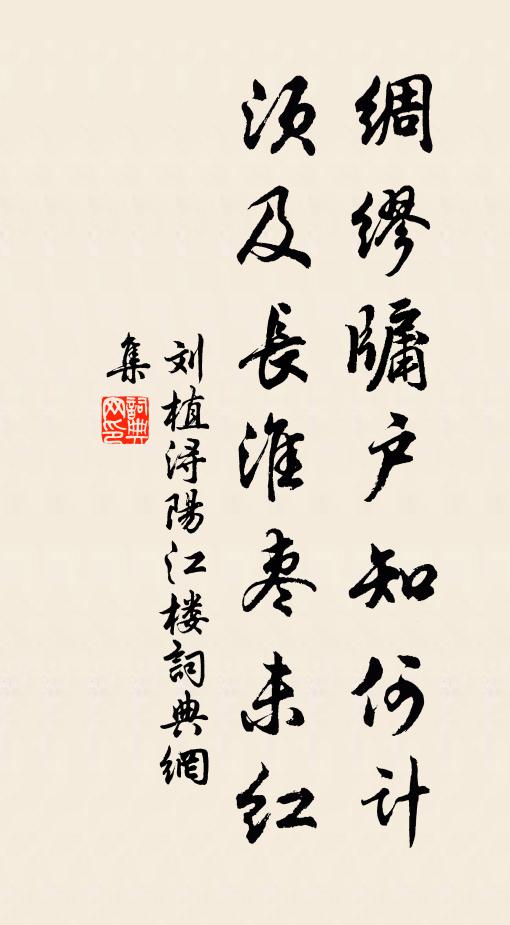 绸缪牖户知何计
须及長淮枣未红
刘植浔陽江楼詞典網
集
詞典
网印